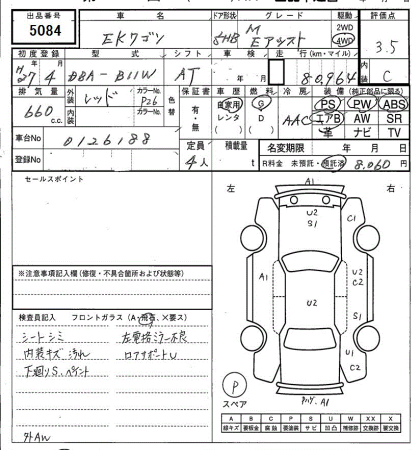 出品番号 車名 ドア形状 グレード 駆動 評価点
5084 EKワゴン 5HB M Eアシスト 2WD 4WD 3.5
初度登録 型式 シフト 車検 走行(km・マイル) 内装
H27/4 DBA-B11W AT 80,964 C
排気量 外装 カラーNo. 色替 保証書 車歴 燃料 冷房 装備(純正部品に限る)
660c.c. レッド P26 有・無 自家用 レンタ ( ) G D ( ) AAC PS PW ABS
エアB AW SR
革 ナビ TV
内装 カラーNo.
車台No 0126188 定員 4人 積載量 t 名変期限 年 月 日
登録No R料金 未預託・預託済 8,060円
セールスポイント
左 右
A1
U2
S1
C1
A1
U2
U2
C2
S1
U1
C2
A1
※注意事項記入欄(修復・不具合箇所および状態等)
検査員記入 フロントガラス(A・飛石、X要ス)
シートシミ 左電格ミラー不良
内装キズ 汚れ ロアサポートU
下廻りS、ペイント
外AW
P
スペア
A B C P S U W X XX
線キズ 要板金 腐蝕 要塗装 サビ 凹凸 補修跡 交換跡 要交換